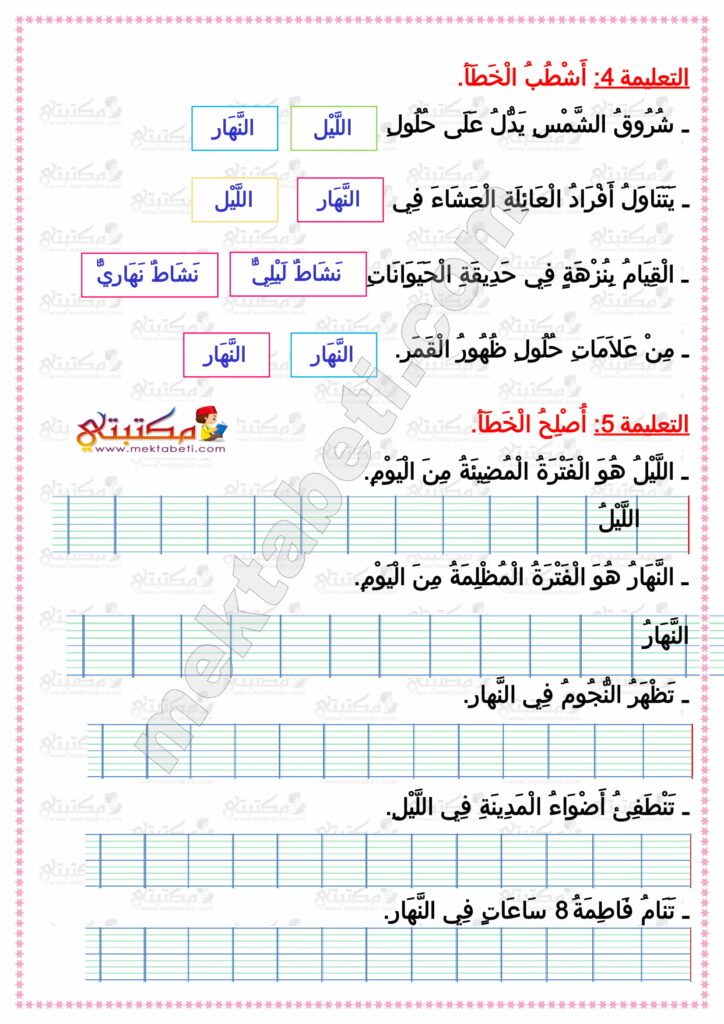 التعليمة 4: أَشْطُبُ الْخَطَأَ.
ـ شُرُوقُ الشَّمْسِ يَدُّلُ عَلَى حُلُولِ اللَّيْل النَّهَار
ـ يَتَنَاوَلُ أَفْرَادُ الْعَائِلَةِ الْعَشَاءَ فِي النَّهَار اللَّيْل
ـ الْقِيَامُ بِنُزْهَةٍ فِي حَدِيقَةِ الْحَيَوَانَاتِ نَشَاطٌ لَيْلِيٌّ نَشَاطٌ نَهَارِيٌّ
ـ مِنْ عَلاَمَاتِ حُلُولِ ظُهُورُ الْقَمَر. النَّهَار النَّهَار
التعليمة 5: أُصْلِحُ الْخَطَأَ.
مكتبتي
www.mektabeti.com
ـ اللَّيْلُ هُوَ الْفَتْرَةُ الْمُضِيئَةُ مِنَ الْيَوْمِ.
اللَّيْلُ
ـ النَّهَارُ هُوَ الْفَتْرَةُ الْمُظْلِمَةُ مِنَ الْيَوْمِ.
النَّهَارُ
ـ تَظْهَرُ النُّجُومُ فِي النَّهار.
ـ تَنْطَفِئُ أَضْوَاءُ الْمَدِينَةِ فِي اللَّيْلِ.
ـ تَنَامُ فَاطِمَةُ 8 سَاعَاتٍ فِي النَّهَار.
mektabeti.com